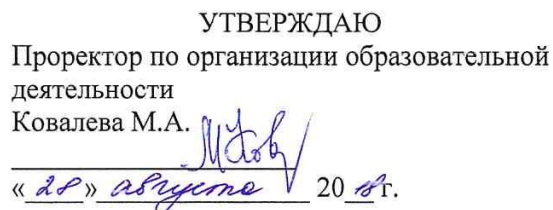 УТВЕРЖДАЮ
Проректор по организации образовательной
деятельности
Ковалева М.А.
« 28 » августа 2018 г.